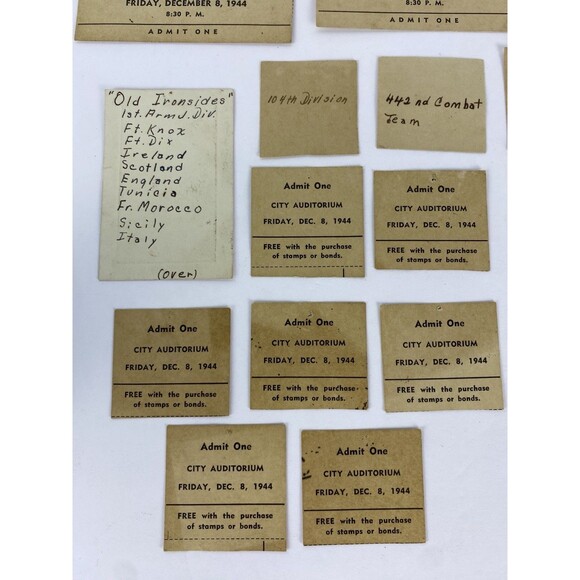 FRIDAY, DECEMBER 8, 1944
8:30 P. M.
ADMIT ONE
8:30 P. M.
ADMIT ONE
"Old Ironsides"
1st. Armd. Div.
Ft. Knox
Ft. Dix
Ireland
Scotland
England
Tunicia
Fr. Morocco
Sicily
Italy
(over)
104th Division
442nd Combat
Team
Admit One
CITY AUDITORIUM
FRIDAY, DEC. 8, 1944
FREE with the purchase
of stamps or bonds.
Admit One
CITY AUDITORIUM
FRIDAY, DEC. 8, 1944
FREE with the purchase
of stamps or bonds.
Admit One
CITY AUDITORIUM
FRIDAY, DEC. 8, 1944
FREE with the purchase
of stamps or bonds.
Admit One
CITY AUDITORIUM
FRIDAY, DEC. 8, 1944
FREE with the purchase
of stamps or bonds.
Admit One
CITY AUDITORIUM
FRIDAY, DEC. 8, 1944
FREE with the purchase
of stamps or bonds.
Admit One
CITY AUDITORIUM
FRIDAY, DEC. 8, 1944
FREE with the purchase
of stamps or bonds.
Admit One
CITY AUDITORIUM
FRIDAY, DEC. 8, 1944
FREE with the purchase
of stamps or bonds.